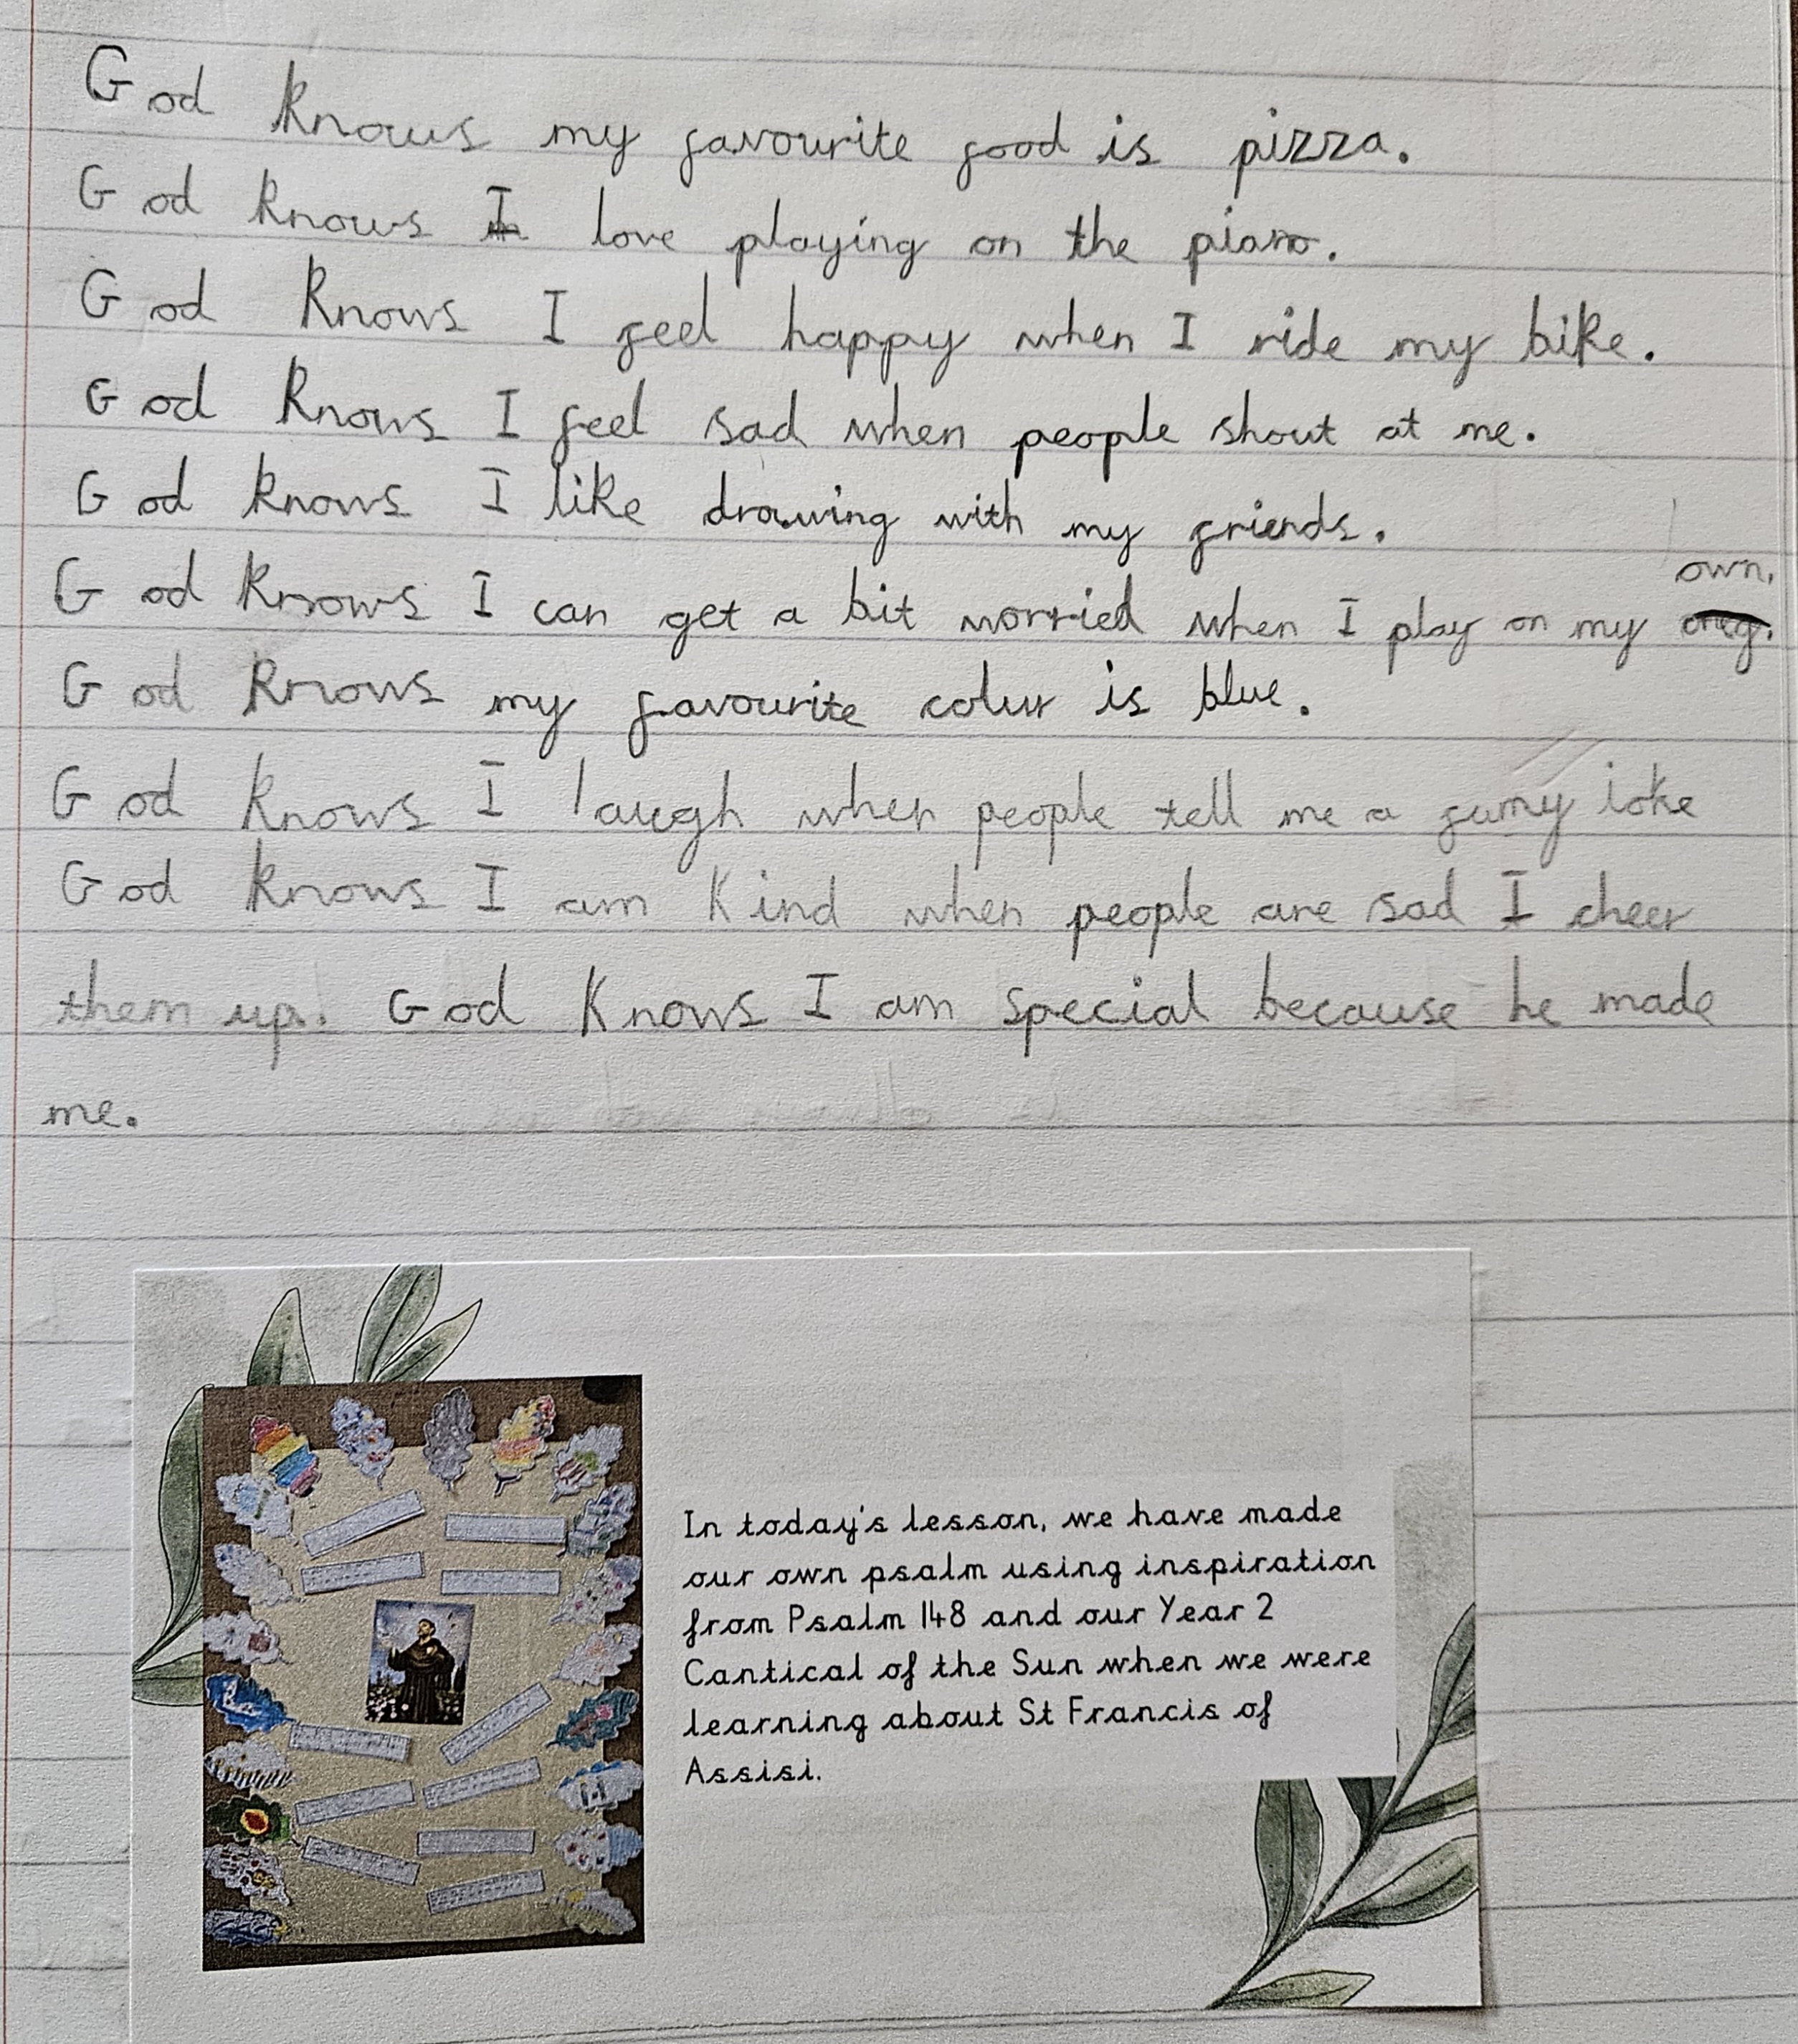 God knows my favourite food is pizza.
God knows I love playing on the piano.
God knows I feel happy when I ride my bike.
God knows I feel sad when people shout at me.
God knows I like drawing with my friends.
own.
God knows I can get a bit worried when I play on my
God knows my favourite colur is blue.
God knows I laugh when people tell me a funny joke
God knows I am kind when people are sad I cheer
them up. God knows I am special because he made
me.
In today's lesson, we have made
our own psalm using inspiration
from Psalm 148 and our Year 2
Cantical of the Sun when we were
learning about St Francis of
Assisi.